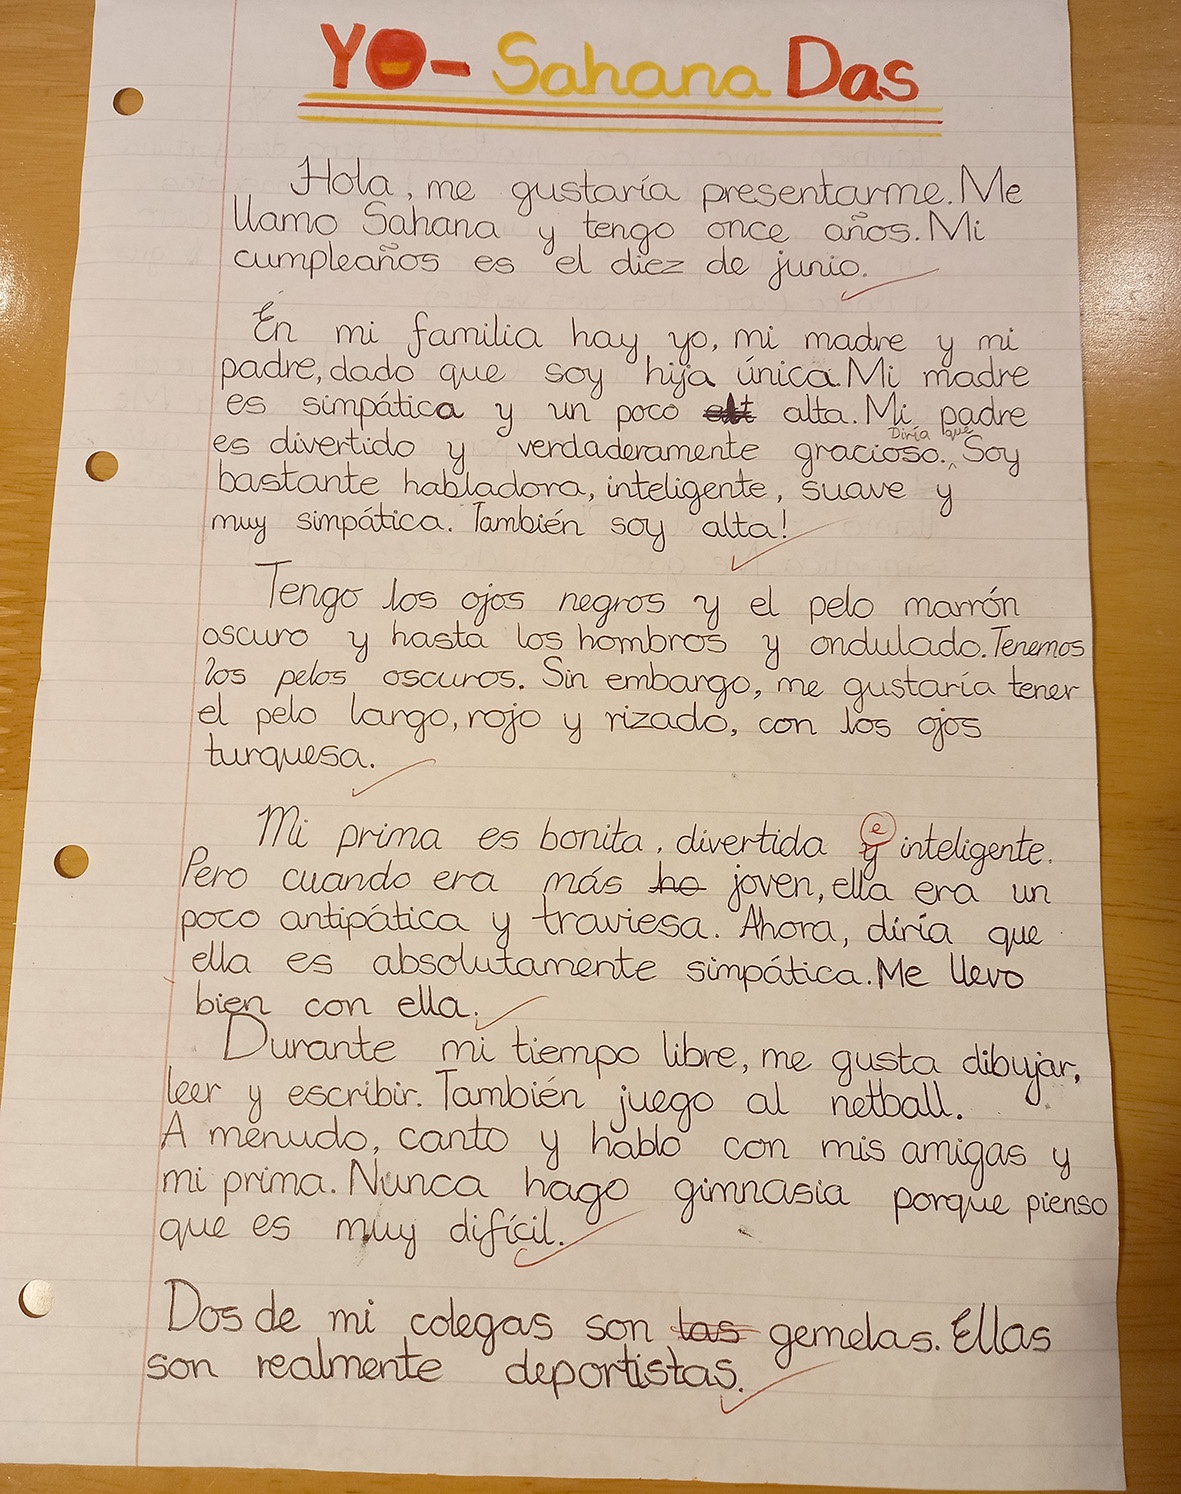 YO - Sahana Das
Hola, me gustaría presentarme. Me
llamo Sahana y tengo once años. Mi
cumpleaños es el diez de junio.
En mi familia hay yo, mi madre y mi
padre, dado que soy hija única. Mi madre
es simpática y un poco alta. Mi padre
es divertido y verdaderamente gracioso. Diría que Soy
bastante habladora, inteligente, suave y
muy simpática. También soy alta!
Tengo los ojos negros y el pelo marrón
oscuro y hasta los hombros y ondulado. Tenemos
los pelos oscuros. Sin embargo, me gustaría tener
el pelo largo, rojo y rizado, con los ojos
turquesa.
Mi prima es bonita, divertida e inteligente.
Pero cuando era más joven, ella era un
poco antipática y traviesa. Ahora, diría que
ella es absolutamente simpática. Me llevo
bien con ella.
Durante mi tiempo libre, me gusta dibujar,
leer y escribir. También juego al netball.
A menudo, canto y hablo con mis amigas y
mi prima. Nunca hago gimnasia porque pienso
que es muy difícil.
Dos de mi colegas son gemelas. Ellas
son realmente deportistas.